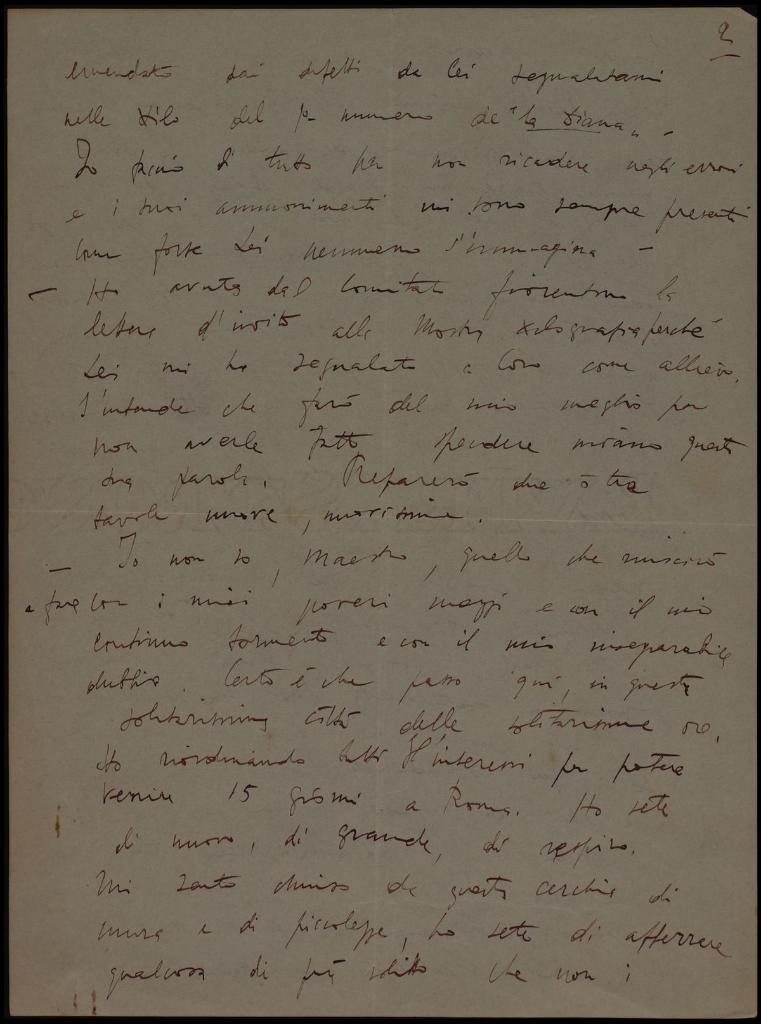 2
emendato dai difetti da Lei segnalatami
nelle xilo del 1° numero de "la Diana" -
Io faccio di tutto per non ricadere negli errori
e i suoi ammonimenti mi sono sempre presenti
come forse Lei nemmeno s'immagina -
- Ho avuto dal Comitato fiorentino la
lettera d'invito alla Mostra xilografia perché
Lei mi ha segnalato a loro come allievo.
S'intende che farò del mio meglio per
non averle fatto spendere invano questa
sua parola. Preparerò due o tre
tavole nuove, nuovissime.
- Io non so, Maestro, quello che riuscirò
a fare con i miei poveri mezzi e con il mio
continuo tormento e con il mio inseparabile
dubbio. Certo è che passo qui, in questa
solitarissima città delle solitarissime ore.
Sto riordinando tutti gl'interessi per potere
venire 15 giorni a Roma. Ho sete
di nuovo, di grande, di respiro.
Mi sento chiuso da questa cerchia di
mura e di piccolezze, ho sete di afferrare
qualcosa di più solito che non i